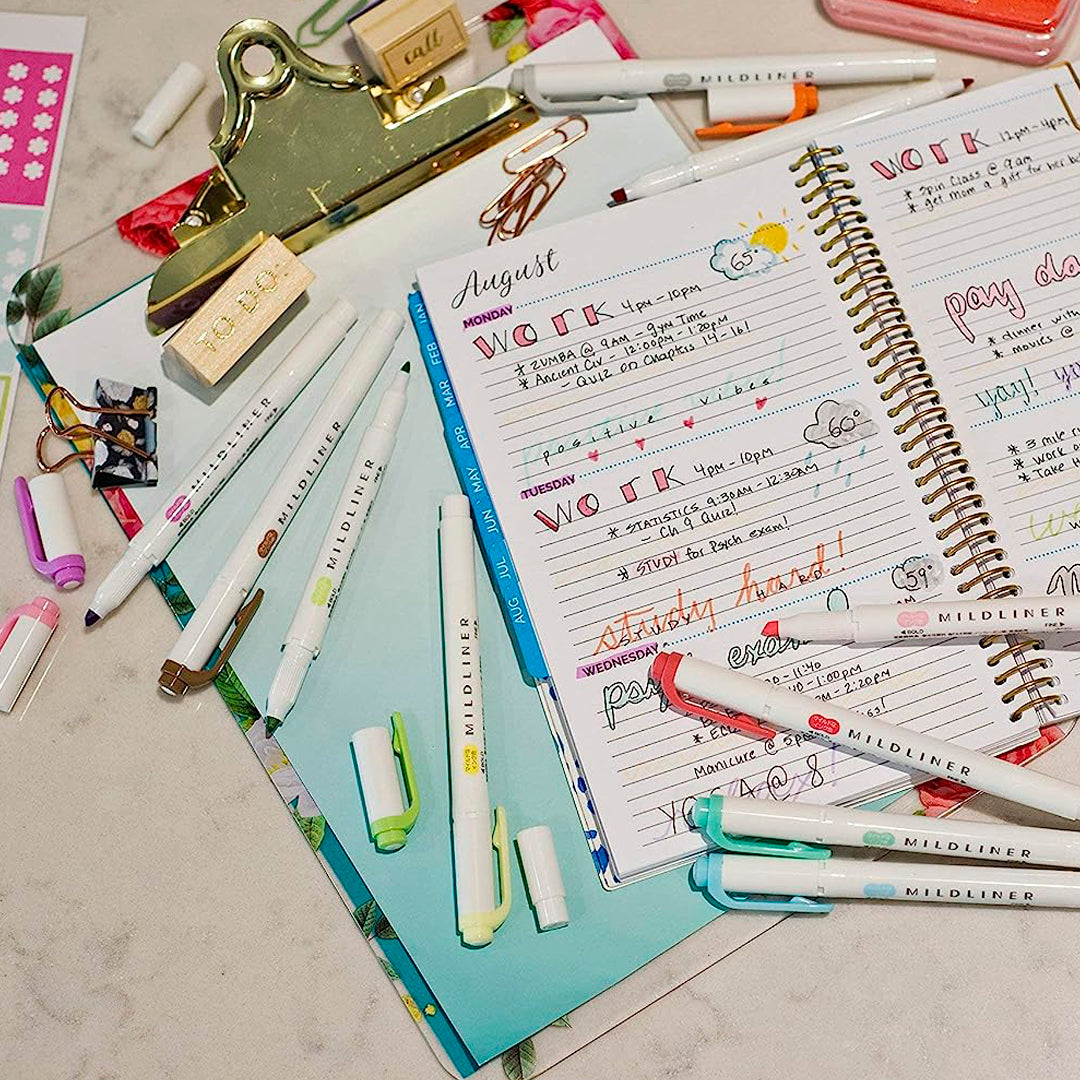 call
MILDLINER
TO DO
August
65°
MONDAY
WORK 4PM - 10PM
* ZUMBA @ 9AM - Gym Time
* Ancient Civ - 12:00PM - 1:20PM
- Quiz on Chapters 14-16!
positive vibes
60°
TUESDAY
WORK 4PM - 10PM
* STATISTICS 9:30AM - 12:30AM
- Ch 9 Quiz!
* STUDY for Psych exam!
study hard!
STUDY HARD
59°
WEDNESDAY
- 11:40
- 1:00PM
PM - 2:20PM
Manicure @ 5p
YOGA @ 8
JAN
FEB
MAR
APR
MAY
JUN
JUL
AUG
WORK 12PM - 4PM
* Spin Class @ 9am
* get mom a gift for her
pay da
* dinner with
* movies @
yay!
* 3 mile
* Work
* Take
MILDLINER
MILDLINER
MILDLINER
MILDLINER
マイルドライナー
◀BOLD FINE▶
MILDLINER
MILDLINER
MILDLINER
MILDLINER